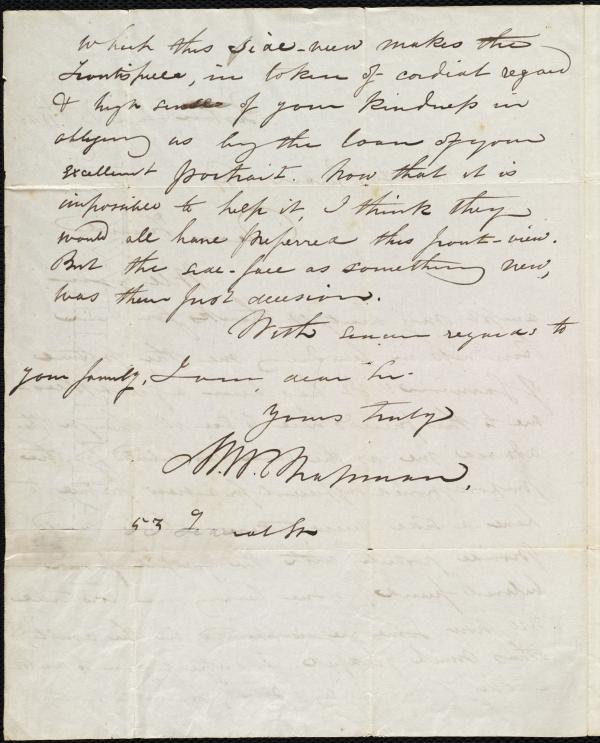 which this side-view makes the
frontispiece, in token of cordial regard
& high sense of your kindness in
obliging us by the loan of your
excellent portrait. Now that it is
impossible to help it, I think they
would all have preferred this front-view.
But the side-face as something new,
was their first decision.
With sincere regards to
your family, I am, dear Sir
Yours truly
M. W. Chapman.
53 Federal St